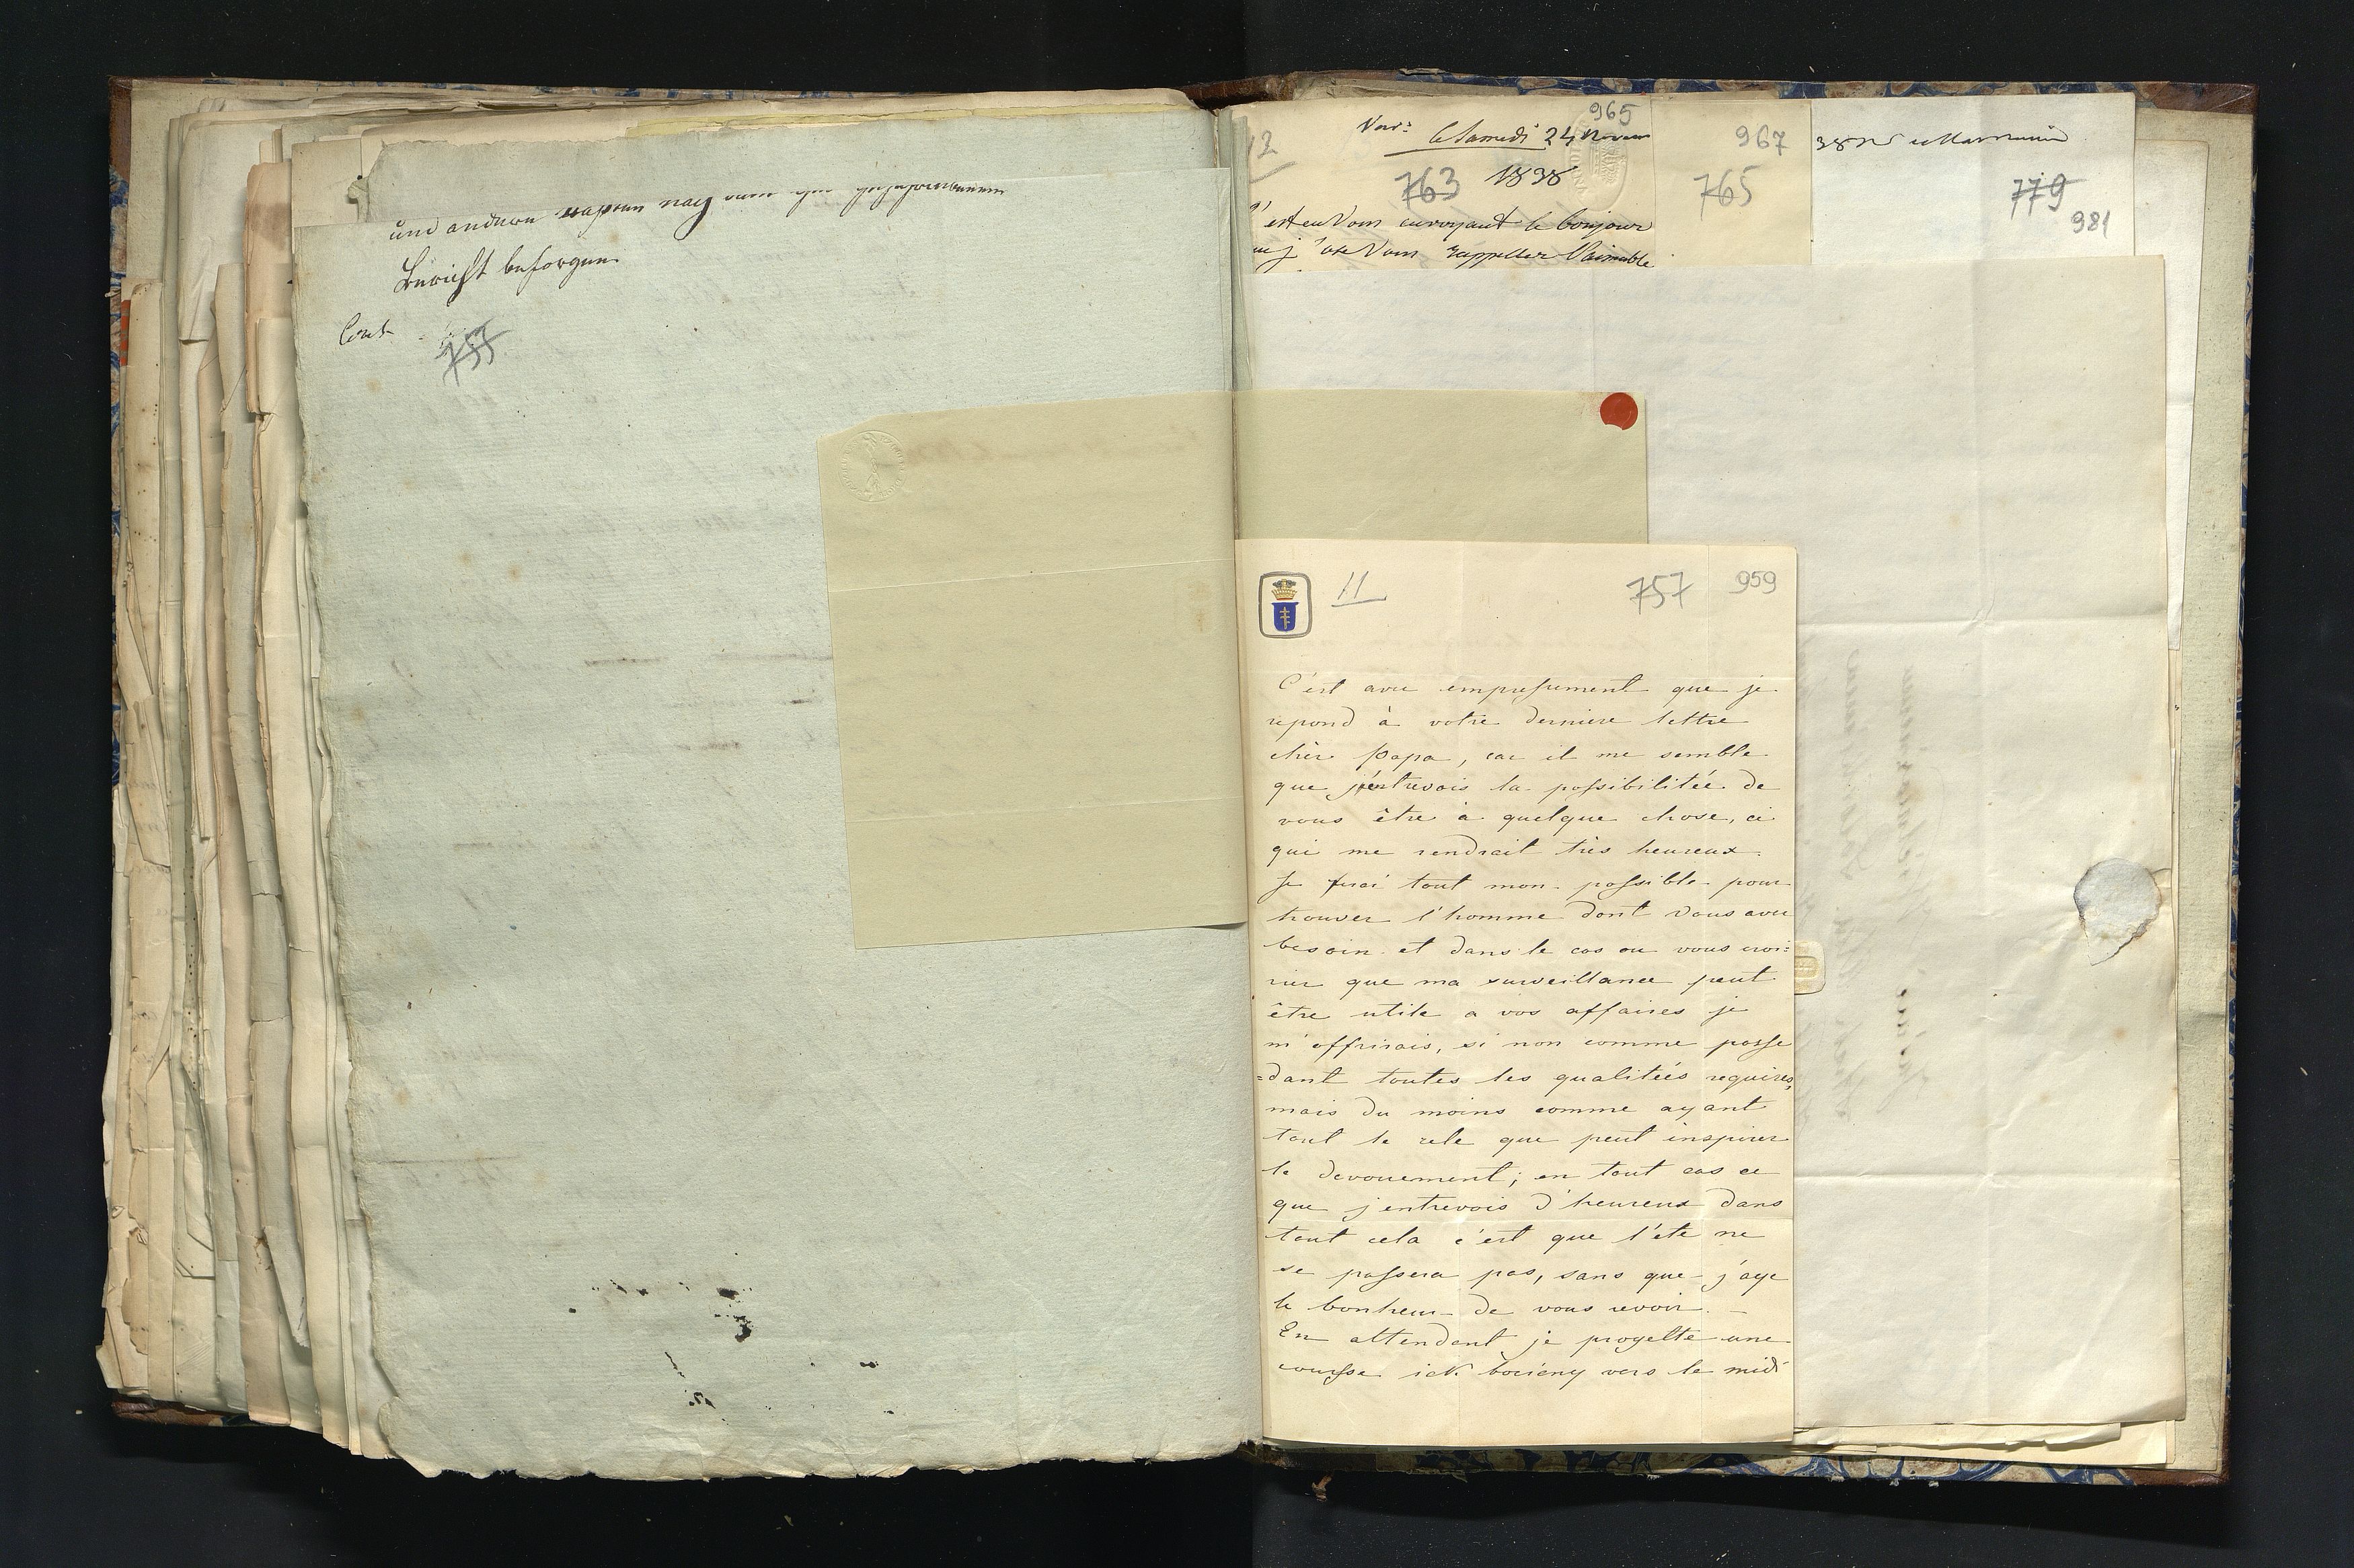 und andern
Bericht besorgen.
Cout
755
12
965
le Samedi 24
763 1838
C'est en Vous envoyant le bonjour
j'ose Vous rappeller l'aimable
967
765
779
981
11
757 959
C'est avec empressement que je
repond à votre derniere lettre
chèr Papa, car il me semble
que j'entrevois la possibilitée de
vous être à quelque chose, ce
qui me rendrait très heureux.
Je ferai tout mon possible pour
trouver l'homme dont vous avez
besoin et dans le cas ou vous croi=
riez que ma surveillance peut
être utile a vos affaires je
m'offrirais, si non comme posse
=dant toutes les qualitées requises,
mais du moins comme ayant
tout le zele que peut inspirer
le devouement; en tout cas ce
que j'entrevois d'heureux dans
tout cela c'est que l'éte ne
se passera pas, sans que j'aye
le bonheur de vous revoir. –
En attendant je progette une
course vers le midi